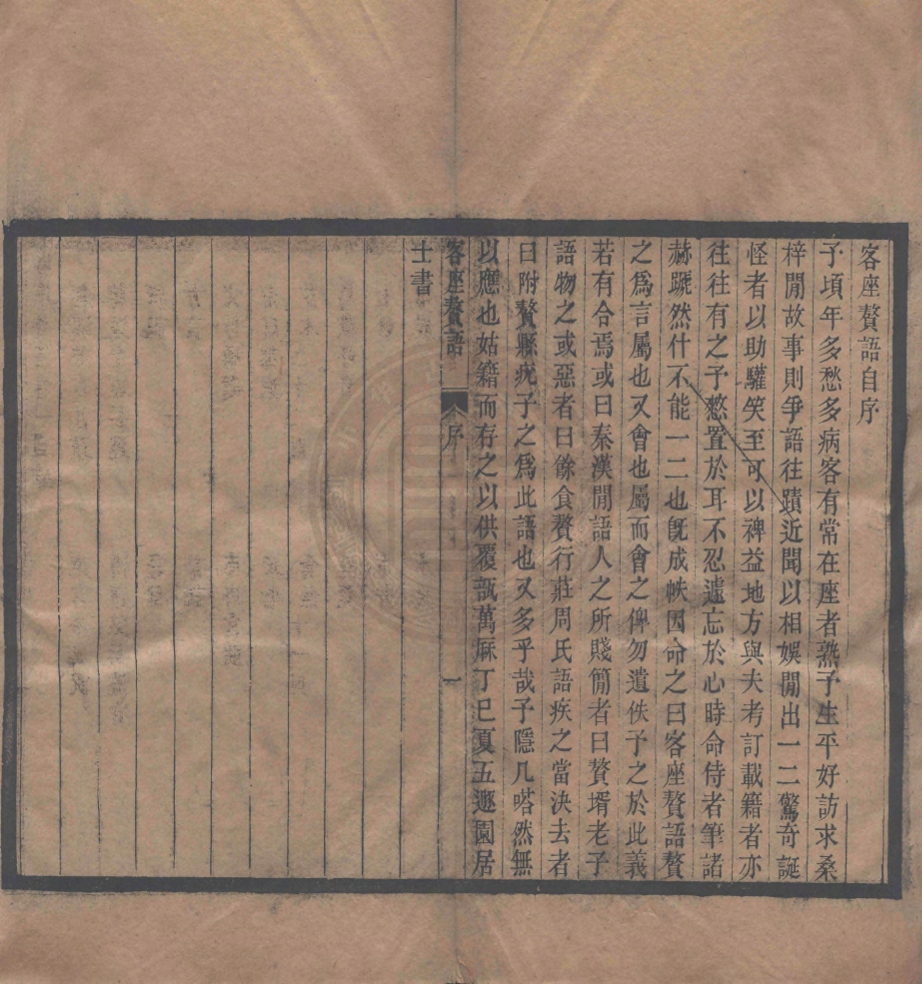 客座贅語自序
予頃年多愁多病客有常在座者熟予生平好訪求桑
梓閒故事則爭語往蹟近聞以相娛閒出一二驚奇誕
怪者以助驩笑至可以裨益地方與夫考訂載籍者亦
往往有之予愁置於耳不忍遽忘於心時命侍者筆諸
赫蹏然什不能一二也旣成帙因命之曰客座贅語贅
之爲言屬也又會也屬而會之俾勿遺佚予之於此義
若有合焉或曰秦漢閒語人之所賤簡者曰贅壻老子
語物之或惡者曰餘食贅行莊周氏語疾之當決去者
曰附贅縣疣子之爲此語也又多乎哉予隱几嗒然無
以應也姑籍而存之以供覆瓿萬厤丁巳夏五遯園居
客座贅語
序
一
士書